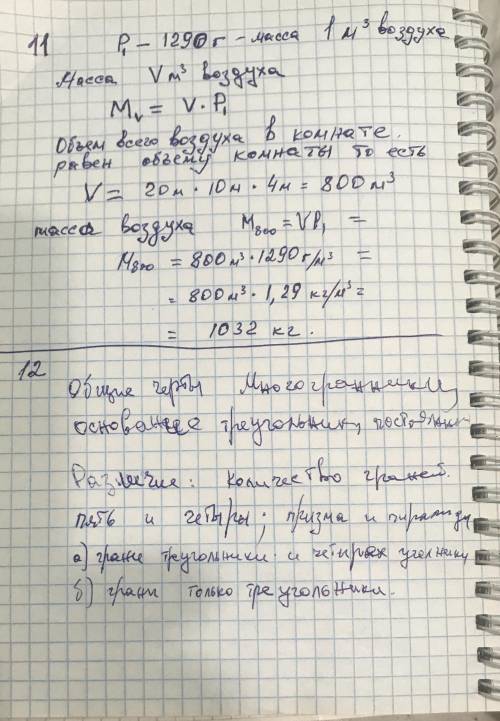 11 P₁ - 1290 г - масса 1 м³ воздуха
Масса V м³ воздуха
Mᵥ = V · P₁
Объем всего воздуха в комнате.
равен объему комнаты то есть
V = 20м · 10м · 4м = 800 м³
масса воздуха M₈₀₀ = VP₁ =
M₈₀₀ = 800 м³ · 1290 г/м³ =
= 800 м³ · 1,29 кг/м³ =
= 1032 кг.
12
Общие черты Многогранники,
основание треугольник,
Различие: количество граней.
пять и четыры; призма и пирамида
а) грани треугольники и четырех угольники
б) грани только треугольники.